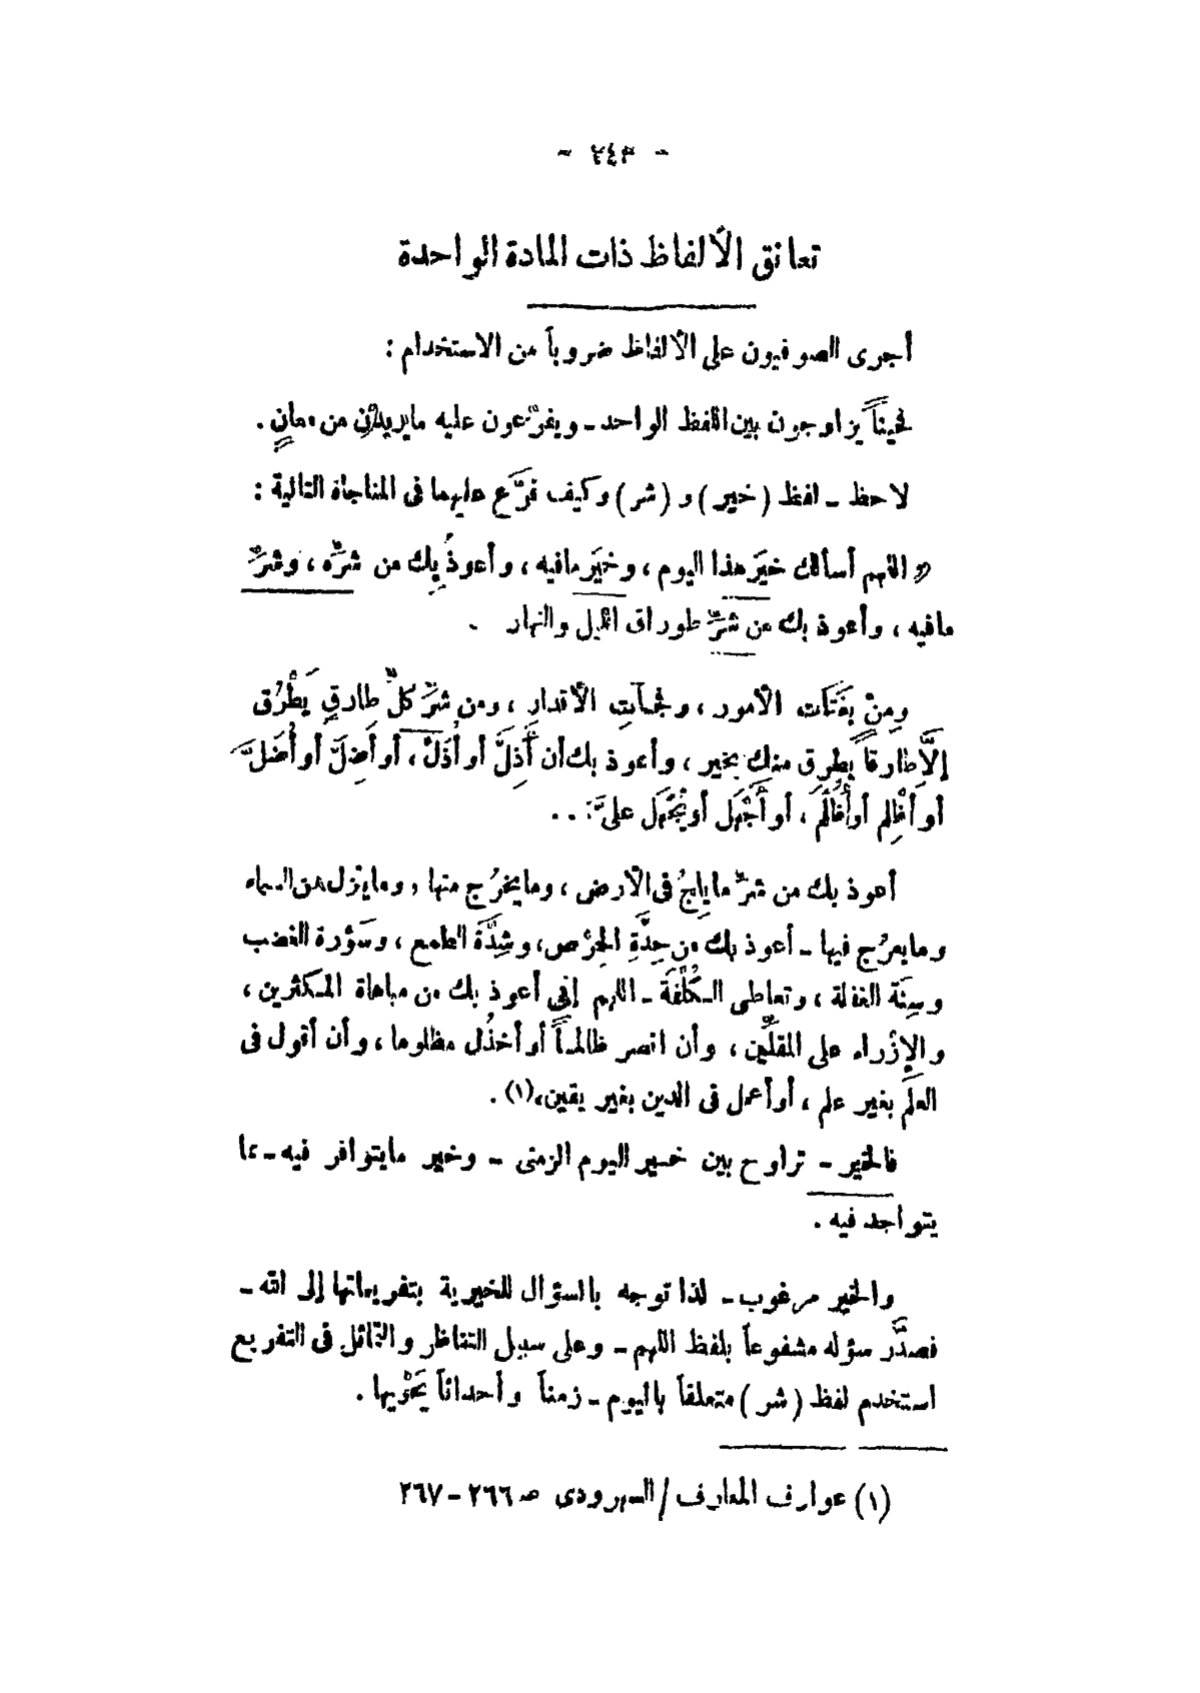 - ٢٤٣ -
تعانق الألفاظ ذات المادة الواحدة
أجرى الصوفيون على الألفاظ ضروباً من الاستخدام :
فحيناً يزاوجون بين اللفظ الواحد - ويفرّعون عليه ما يريدون من معانٍ .
لاحظ - لفظ ( خير ) و ( شر ) وكيف فرَّع عليهما فى المناجاة التالية :
« اللهم أسألك خيَر هذا اليوم ، وخيَر مافيه ، وأعوذُ بِك من شرِّه ، وشرِّ
مافيه ، وأعوذ بك من شرِّ طوراق الليل والنهار .
ومِنْ بِغَتَات الأمور ، وفجآتِ الأقدارِ ، ومن شرِّ كلِّ طارقٍ يَطْرُق
إلَّا طارقاً يطرِق منك بخير ، وأعوذ بك أن أَذِلَّ أو أُذَلّ ، أو أَضِلَّ أو أُضَلَّ
أو أَظْلِم أو أُظْلَمَ ، أو أَجْهَل أو يُجْهَل علىَّ : . .
أعوذ بك من شرِّ ما يلِجُ فى الأرض ، وما يخرُج منها , وما ينزل من السماء
وما يعرُج فيها - أعوذ بك من حِدَّةِ الحِرْص ، وشِدَّة الطمع ، وسَوْرة الغضب
وسِنَة الغفلة ، وتعاطى الكُلْفَة - اللهم إنى أعوذ بك من مباهاة المكثرين ،
والإزْراء على المقلِّين ، وأن انصر ظالماً أو أخذُل مظلوما ، وأن أقول فى
العلَم بغير علم ، أو أعمل فى الدين بغير يقين،(١) .
فالخير - تراوح بين خير اليوم الزمنى - وخير مايتوافر فيه - مما
يتواجد فيه .
والخير مرغوب - لذا توجه بالسؤال للخيرية بتفريعاتها إلى الله -
فصدَّر سؤله مشفوعاً بلفظ اللهم - وعلى سبيل التناظر والتماثل فى التفريع
استخدم لفظ ( شر ) متعلقاً باليوم - زمناً وأحداثاً يَحْويها .
(١) عوارف المعارف / السهرودى صـ ٢٦٦ - ٢٦٧